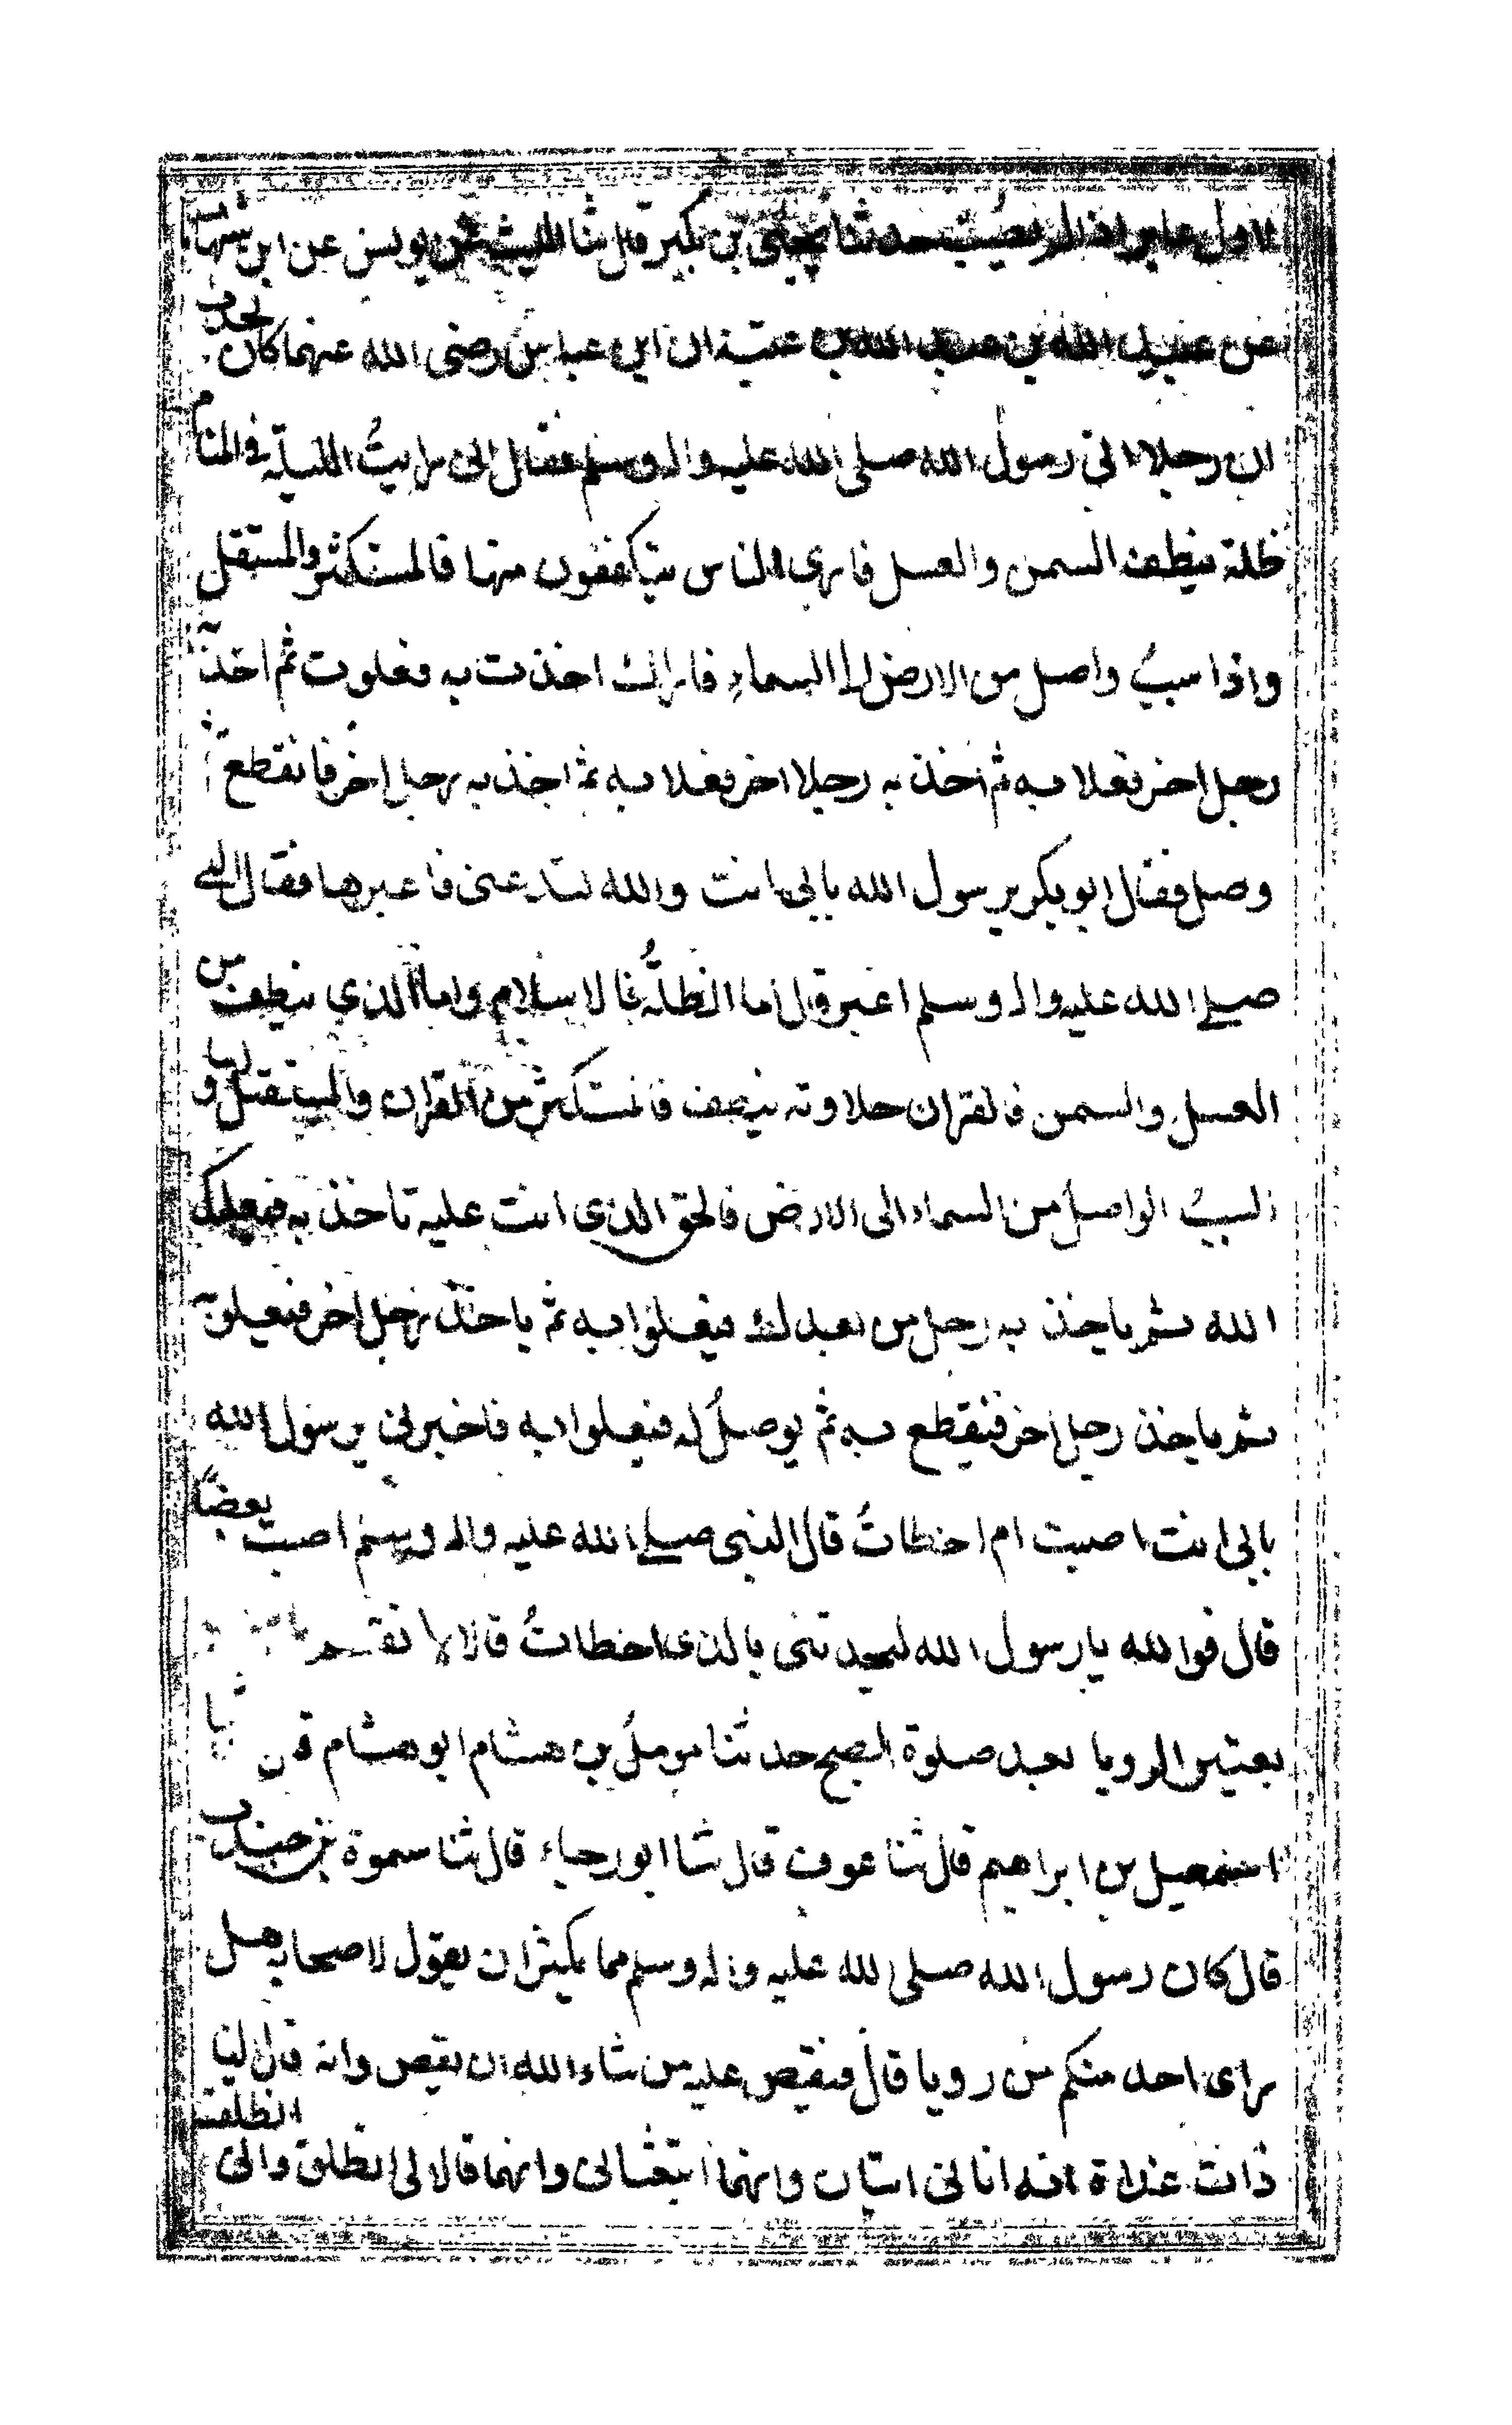 لاول عابر اذا لم يصب حدثنا يحيى بن بكير قال ثنا الليث عن يونس عن ابن شهاب
عن عبيد الله بن عبد الله بن عتبة ان ابن عباس رضى الله عنهما كان يحدث
ان رجلا اتى رسول الله صلى الله عليه واله وسلم فقال انى رايتُ الليلة فى المنام
ظلة ينطف السمن والعسل فارى الناس يتكففون منها فالمستكثر والمستقل
واذا سببٌ واصل من الارض الى السماء فاراك اخذت به فعلوت ثم اخذ به
رجل اخر فعلا به ثم اخذ به رجلا اخر فعلا به ثم اخذ به رجل اخر فانقطع ثم
وصل فقال ابو بكر يرسول الله بابى انت والله لتدعنى فاعبرها فقال النبى
صلى الله عليه واله وسلم اعبر قال اما الظلّةُ فالاسلام واما الذى ينطف من
العسل والسمن فالقران حلاوته ينطف فالمستكثر من القران والمستقل و
السببُ الواصل من السماء الى الارض فالحق الذى انت عليه تاخذ به فيعليك
الله ثم ياخذ به رجل من بعدك فيعلوا به ثم ياخذ رجل اخر فيعلو به
ثم ياخذ رجل اخر فينقطع به ثم يوصلُ له فيعلوا به فاخبرنى يرسول الله
بابى انت اصبت ام اخطاتُ قال النبى صلى الله عليه واله وسلم اصبت بعضاً
قال فوالله يا رسول الله لتحدثنى بالذى اخطاتُ قال لا تقسم
بعتبير الرويا بعد صلوة الصبح حدثنا مومل بن هشام ابو هشام ثنا
اسمعيل بن ابراهيم قال ثنا عوف قال ثنا ابو رجاء قال ثنا سمرة بن جندب
قال كان رسول الله صلى الله عليه واله وسلم مما يكثر ان يقول لاصحابه هل
راى احد منكم من رويا قال فيقص عليه من شاء الله ان يقص وانه قال لنا
ذات غداة انه اتانى اتيان وانهما ابتعثانى وانهما قالا لى انطلق وانى انطلقت